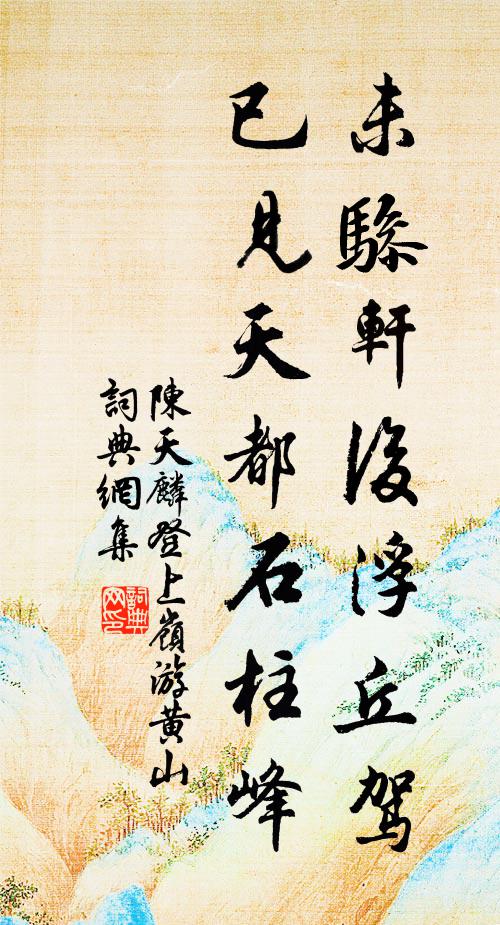 未驂軒後浮丘駕
已見天都石柱峰
陳天麟登上嶺游黃山
詞典網集
詞典网印